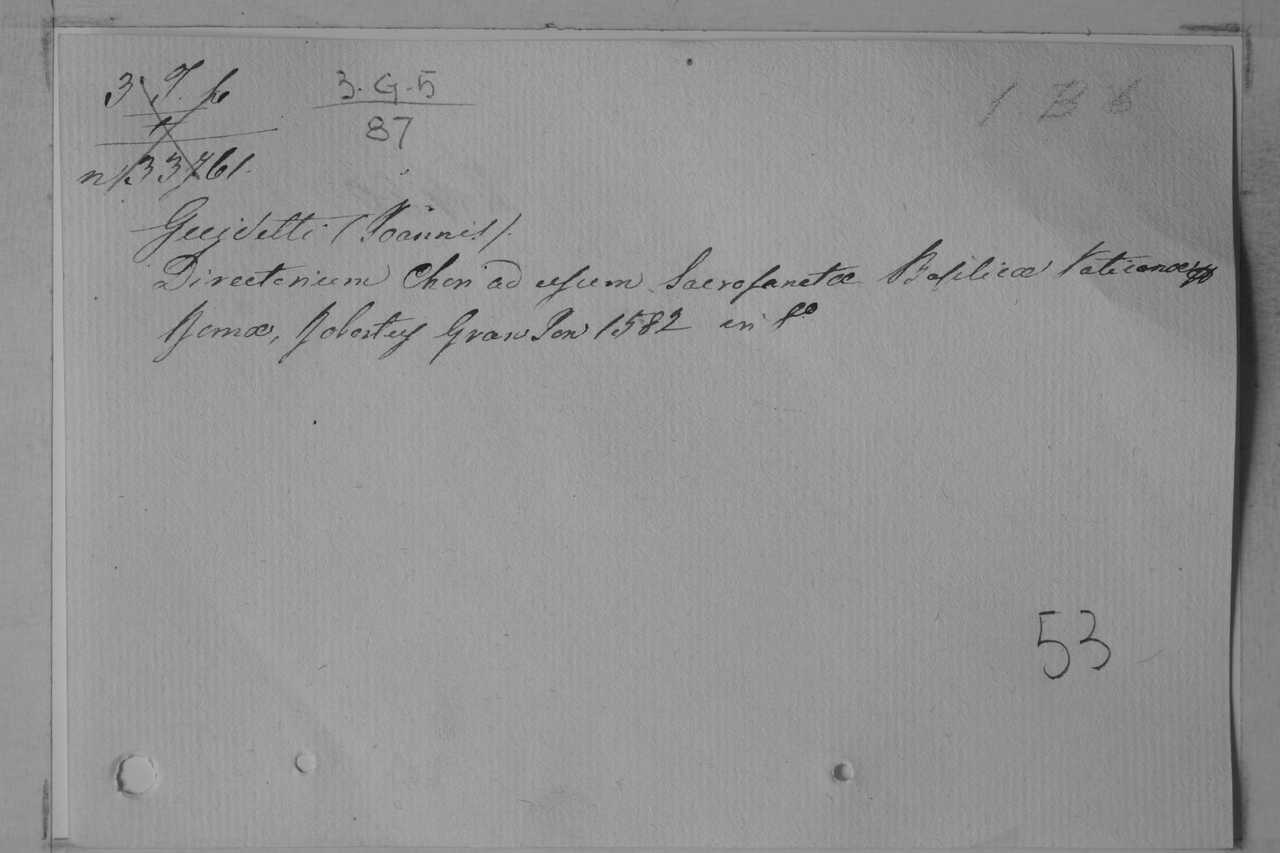 3. G. 5
87
1 B 6
n 33761.
Guidetti (Joannis).
Directorium Chori ad usum Sacrosanctæ Basilicæ Vaticanæ
Romæ, Robertus GranJon 1582 in 8º
53